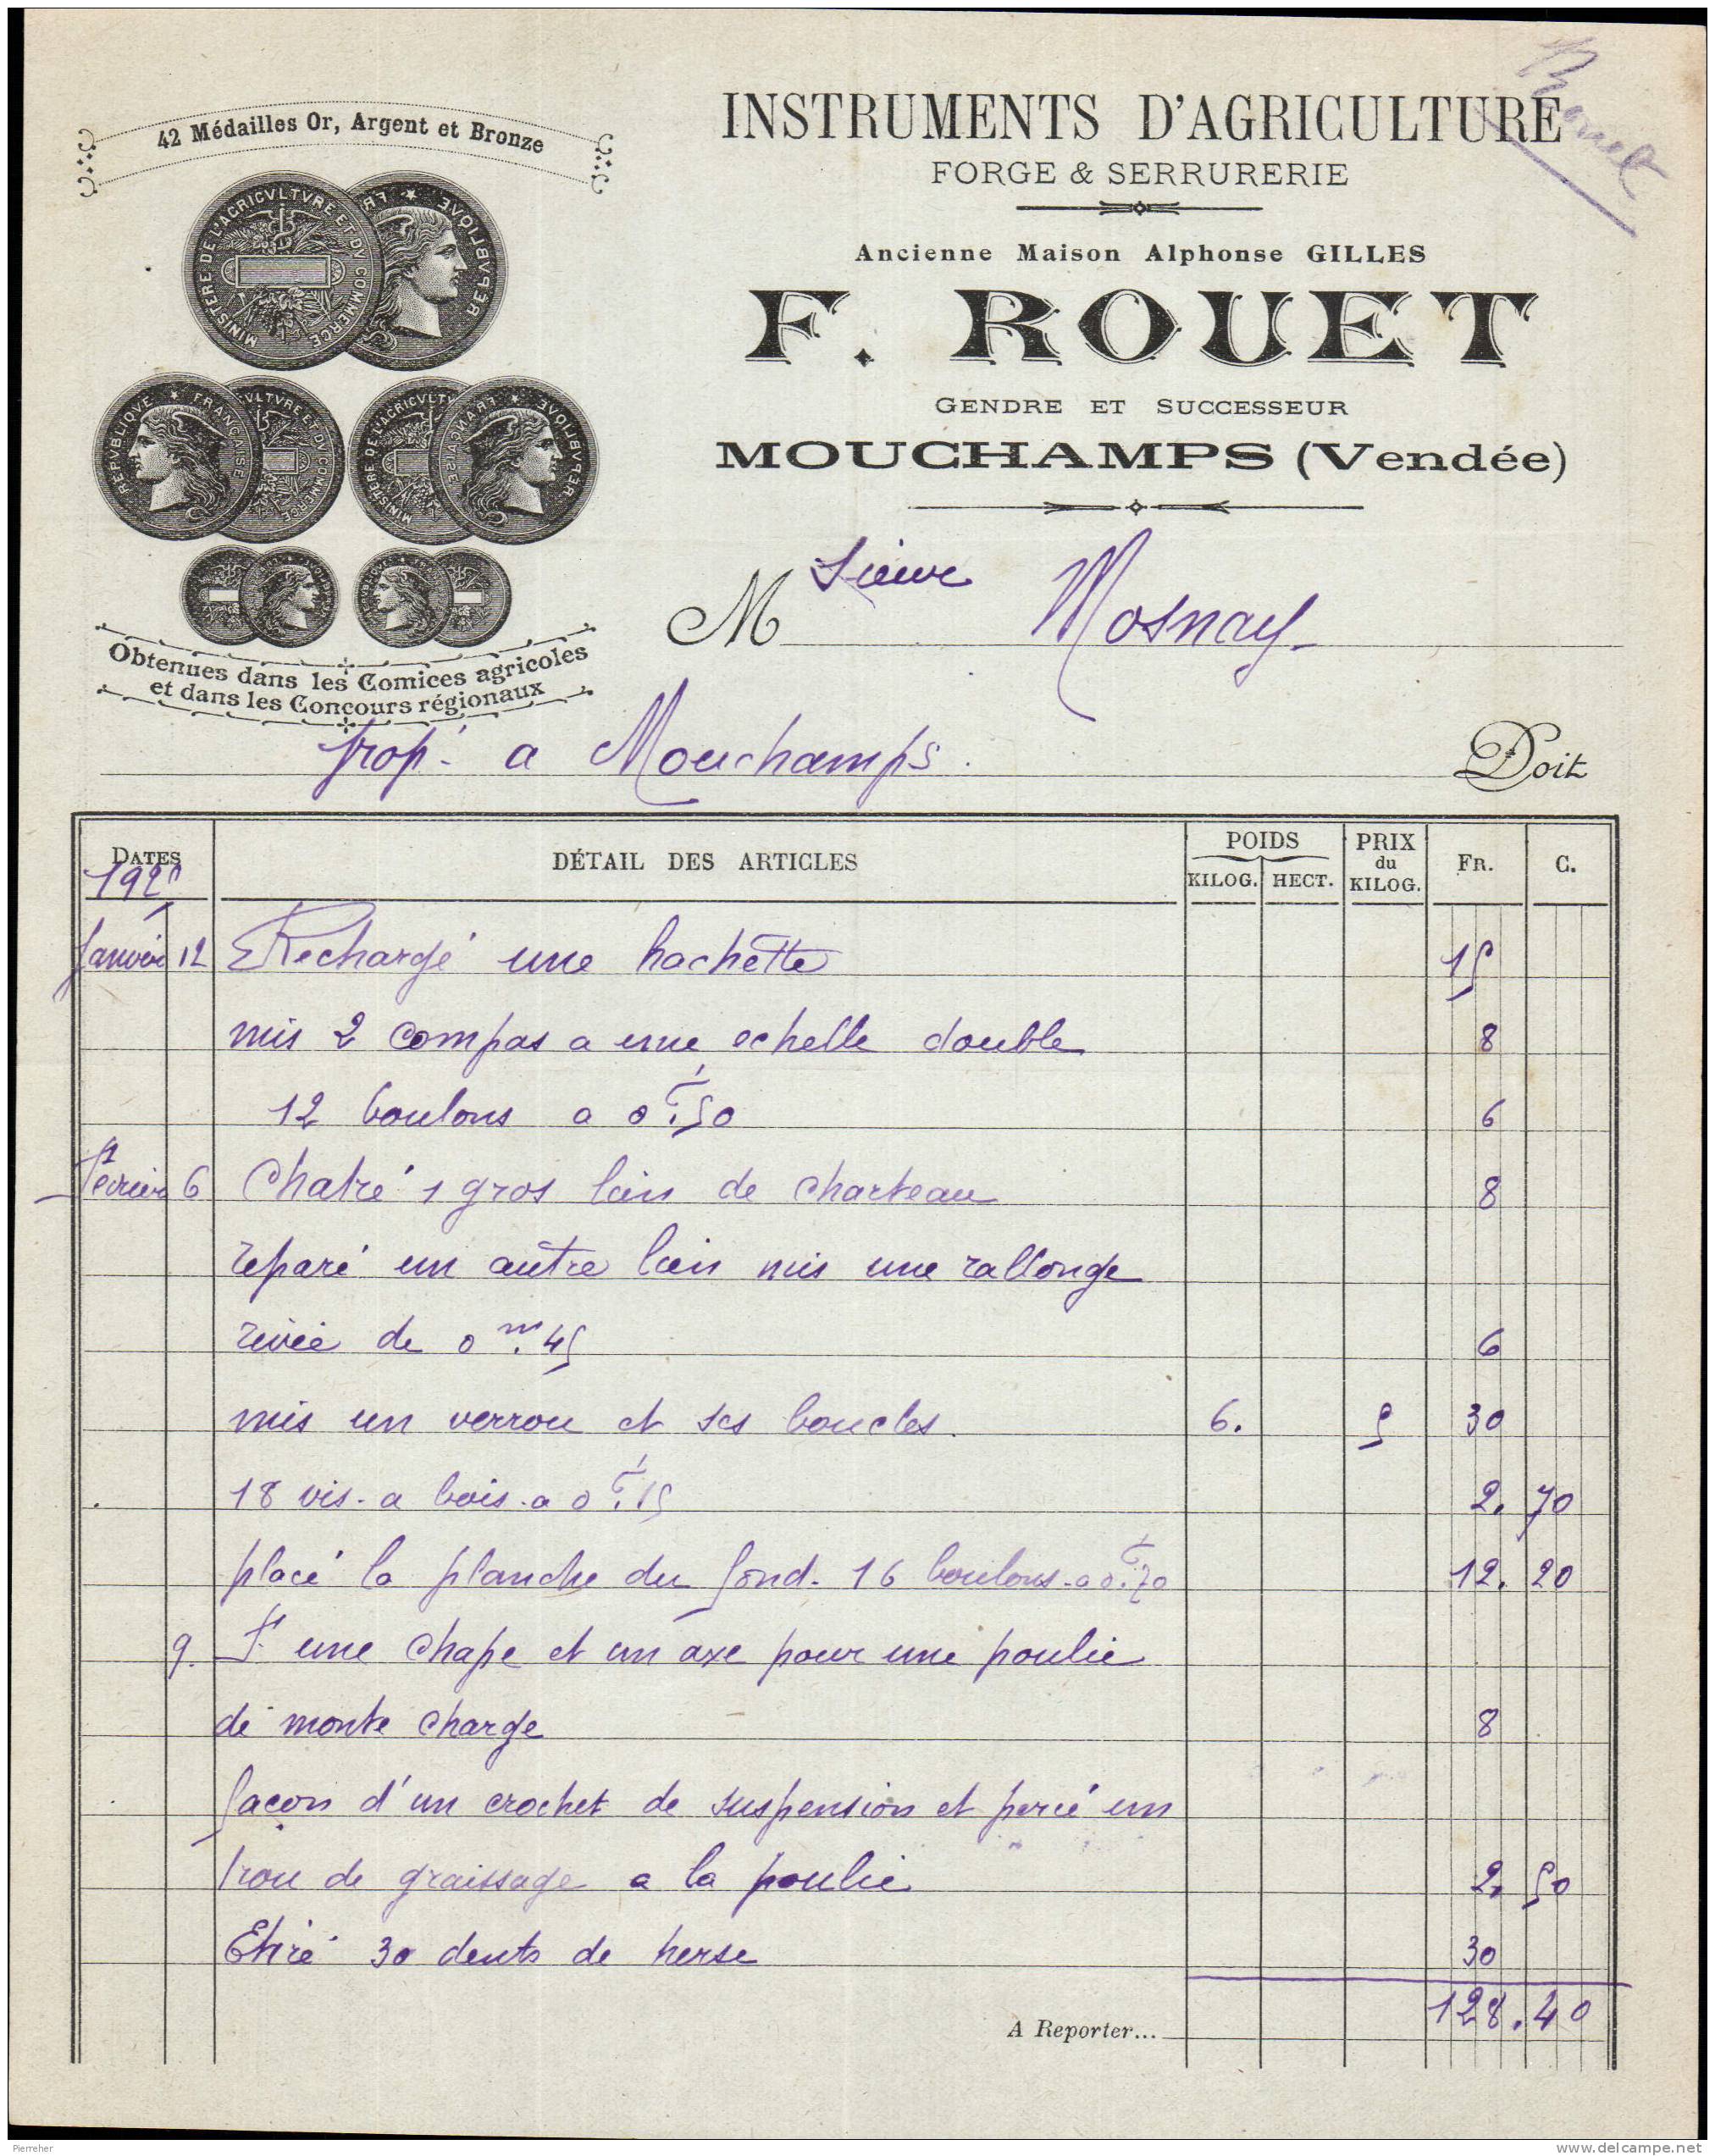 42 Médailles Or, Argent et Bronze
MINISTERE DE L'AGRICVLTVRE ET DV COMMERCE
REPVBLIQVE
REPVBLIQVE ★ FRANÇAISE
MINISTERE DE L'AGRICVLT
FRANÇAISE ★ REPVBLIQVE
Obtenues dans les Comices agricoles
et dans les Concours régionaux
INSTRUMENTS D'AGRICULTURE
FORGE & SERRURERIE
Ancienne Maison Alphonse GILLES
F. ROUET
GENDRE ET SUCCESSEUR
MOUCHAMPS (Vendée)
M Mosnay
prop. a Mouchamps. Doit
DATES DÉTAIL DES ARTICLES POIDS KILOG. HECT. PRIX du KILOG. FR. C.
Janvier 12 Rechargé une hachette 15
mis 2 compas a une echelle double 8
12 boulons a 0f.50 6
fevrier 6 Chatré 1 gros lien de charteau 8
reparé un autre lien mis une rallonge
rivée de 0m.45 6
mis un verrou et ses boucles. 6. 5 30
18 vis a bois a 0f.15 2. 70
placé la planche du fond. 16 boulons a 0f.70 12. 20
9. F une chape et un axe pour une poulie
de monte charge 8
façon d'un crochet de suspension et percé un
trou de graissage a la poulie 2, 50
Etiré 30 dents de herse 30
A Reporter... 128.40
Pierreher
www.delcampe.net